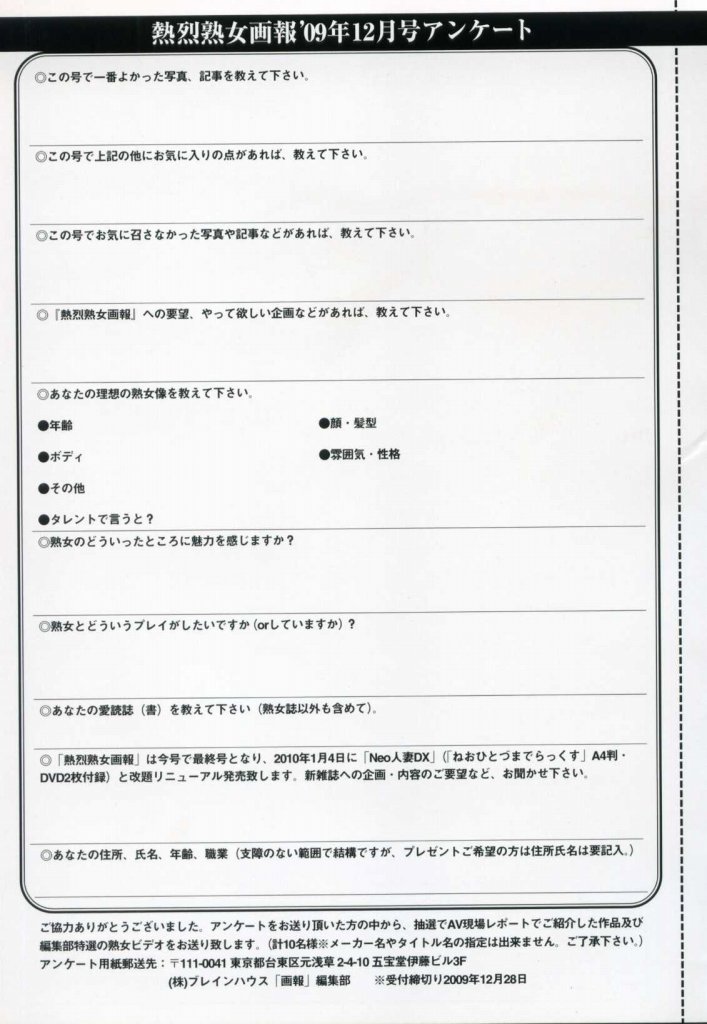 熱烈熟女画報'09年12月号アンケート
◎この号で一番よかった写真、記事を教えて下さい。
◎この号で上記の他にお気に入りの点があれば、教えて下さい。
◎この号でお気に召さなかった写真や記事などがあれば、教えて下さい。
◎『熱烈熟女画報』への要望、やって欲しい企画などがあれば、教えて下さい。
◎あなたの理想の熟女像を教えて下さい。
●年齢　●顔・髪型
●ボディ　●雰囲気・性格
●その他
●タレントで言うと？
◎熟女のどういったところに魅力を感じますか？
◎熟女とどういうプレイがしたいですか（orしていますか）？
◎あなたの愛読誌（書）を教えて下さい（熟女誌以外も含めて）。
◎「熱烈熟女画報」は今号で最終号となり、2010年1月4日に「Neo人妻DX」（「ねおひとづまでらっくす」A4判・
DVD2枚付録）と改題リニューアル発売致します。新雑誌への企画・内容のご要望など、お聞かせ下さい。
◎あなたの住所、氏名、年齢、職業（支障のない範囲で結構ですが、プレゼントご希望の方は住所氏名は要記入。）
ご協力ありがとうございました。アンケートをお送り頂いた方の中から、抽選でAV現場レポートでご紹介した作品及び
編集部特選の熟女ビデオをお送り致します。（計10名様※メーカー名やタイトル名の指定は出来ません。ご了承下さい。）
アンケート用紙郵送先：〒111-0041 東京都台東区元浅草2-4-10 五宝堂伊藤ビル3F
（株）ブレインハウス「画報」編集部　※受付締切り2009年12月28日